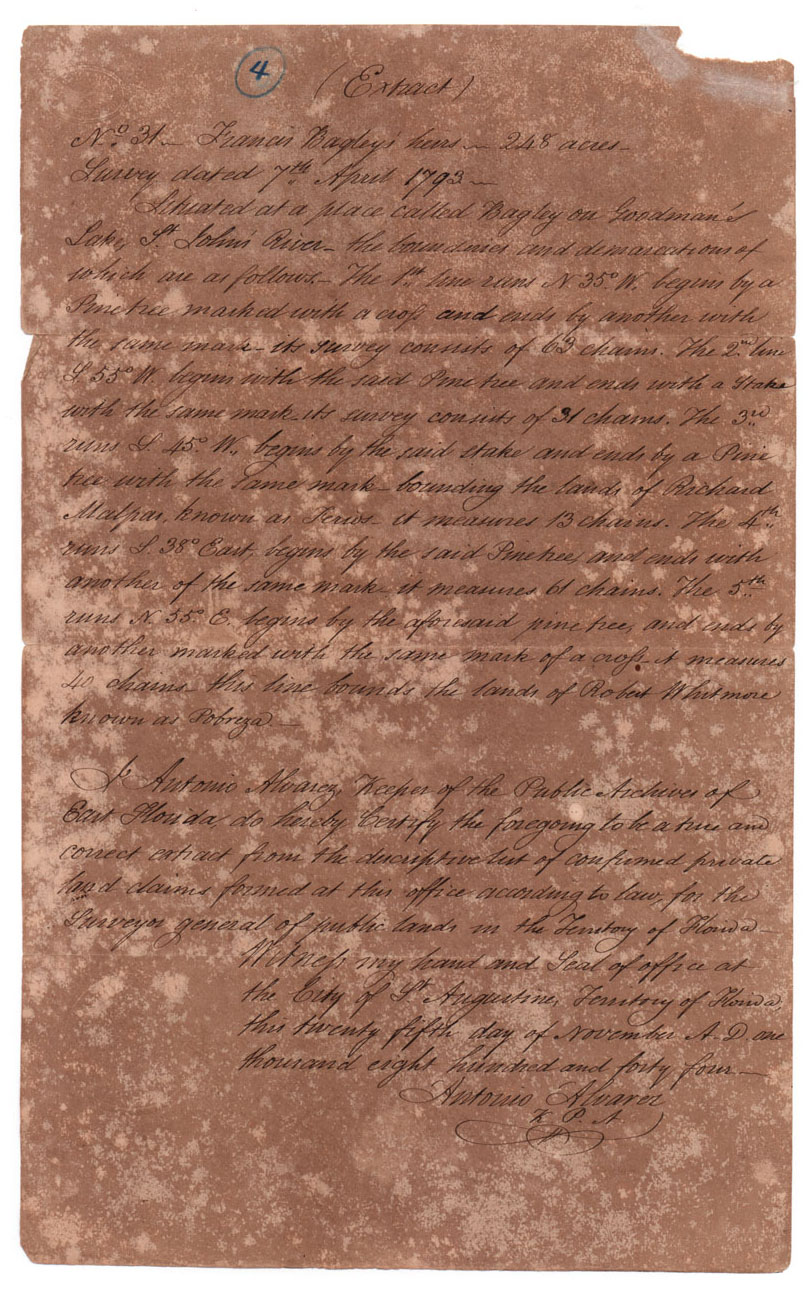 4
(Extract)
No. 31 — Francis Bagley's heirs — 248 acres —
Survey dated 7th April 1793 —
Situated at a place called Bagley on Goodman's
Lake, St. John's River — the boundaries and demarcations of
which are as follows. — The 1st. line runs N. 35° W. begins by a
Pine tree marked with a cross and ends by another with
the same mark — its survey consists of 63 chains. The 2nd line
S. 55° W. begins with the said Pine tree and ends with a Stake
with the same mark its survey consists of 31 chains. The 3rd
runs S. 45° W., begins by the said stake and ends by a Pine
tree with the same mark — bounding the lands of Richard
Malpas, known as — it measures 13 chains. The 4th
runs S. 38° East, begins by the said Pine tree, and ends with
another of the same mark — it measures 61 chains. The 5th
runs N. 55° E. begins by the aforesaid pine tree, and ends by
another marked with the same mark of a cross. It measures
40 chains — this line bounds the lands of Robert Whitmore
known as Pobreza. —
I, Antonio Alvarez, Keeper of the Public Archives of
East Florida, do hereby Certify the foregoing to be a true and
correct extract from the descriptive list of confirmed private
land claims, formed at this office, according to law, for the
Surveyor general of public lands in the Territory of Florida —
Witness my hand and Seal of office at
the City of St Augustine, Territory of Florida,
this twenty fifth day of November A. D. one
thousand eight hundred and forty four —
Antonio Alvarez
K. P. A